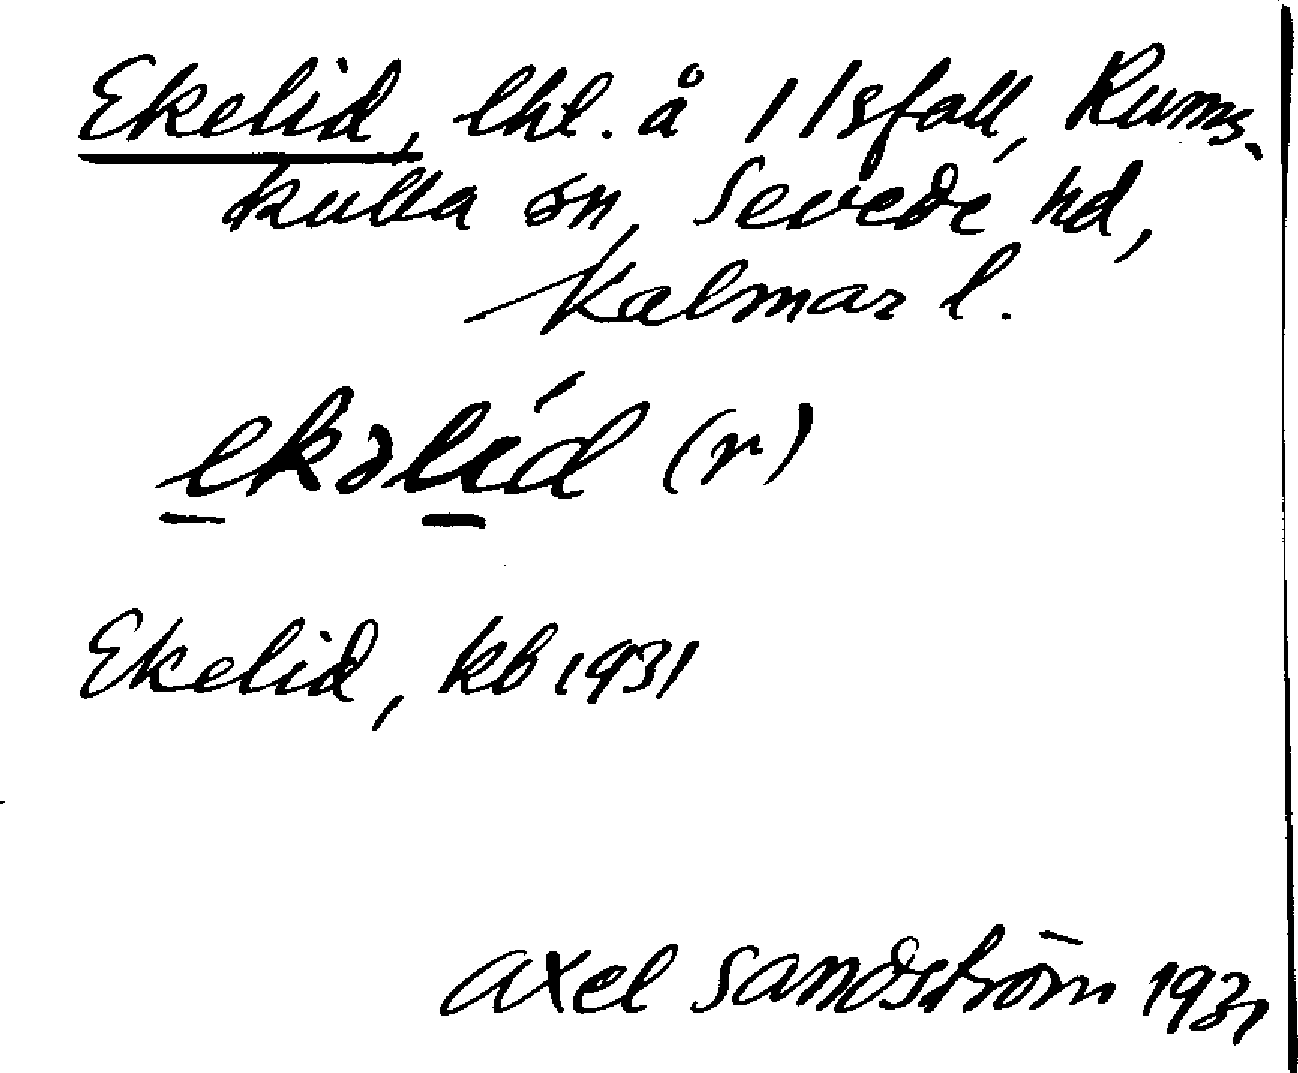 Ekelid, lht. å 1 Isfall, Rums-
kulla sn, Sevede hd,
Kalmar l.
ekəlid (r)
Ekelid, kb 1931
Axel Sandström 1931